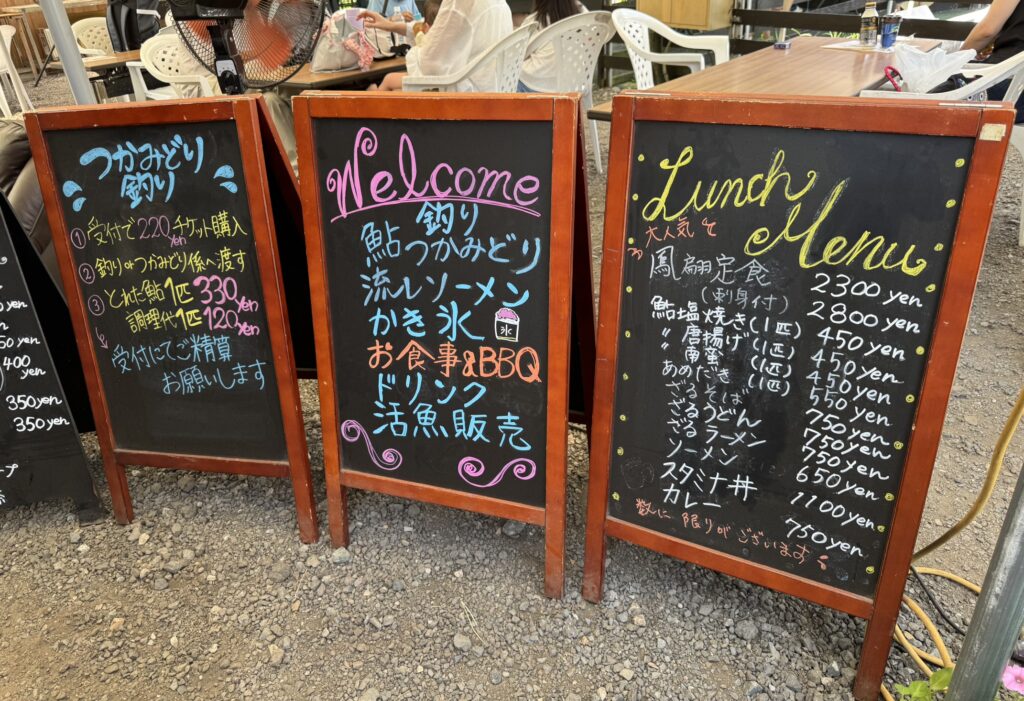 400
yen
350yen
350yen
プ
つかみどり
釣り
① 受付で220yenチケット購入
② 釣りorつかみどり係へ渡す
③ とれた鮎1匹 330yen
調理代1匹 120yen
受付にてご精算
お願いします
Welcome
釣り
鮎つかみどり
流しソーメン
かき氷 氷
お食事&BBQ
ドリンク
活魚販売
Lunch
Menu
大人気
定食 2300yen
(刺身付) 2800yen
鮎塩焼き(1匹) 450yen
〃 唐揚げ(1匹) 450yen
〃 南蛮(1匹) 450yen
あめだき(1匹) 550yen
ざるそば 750yen
ざるうどん 750yen
ざるラーメン 750yen
ソーメン 650yen
スタミナ丼 1100yen
カレー 750yen
数に限りがございます